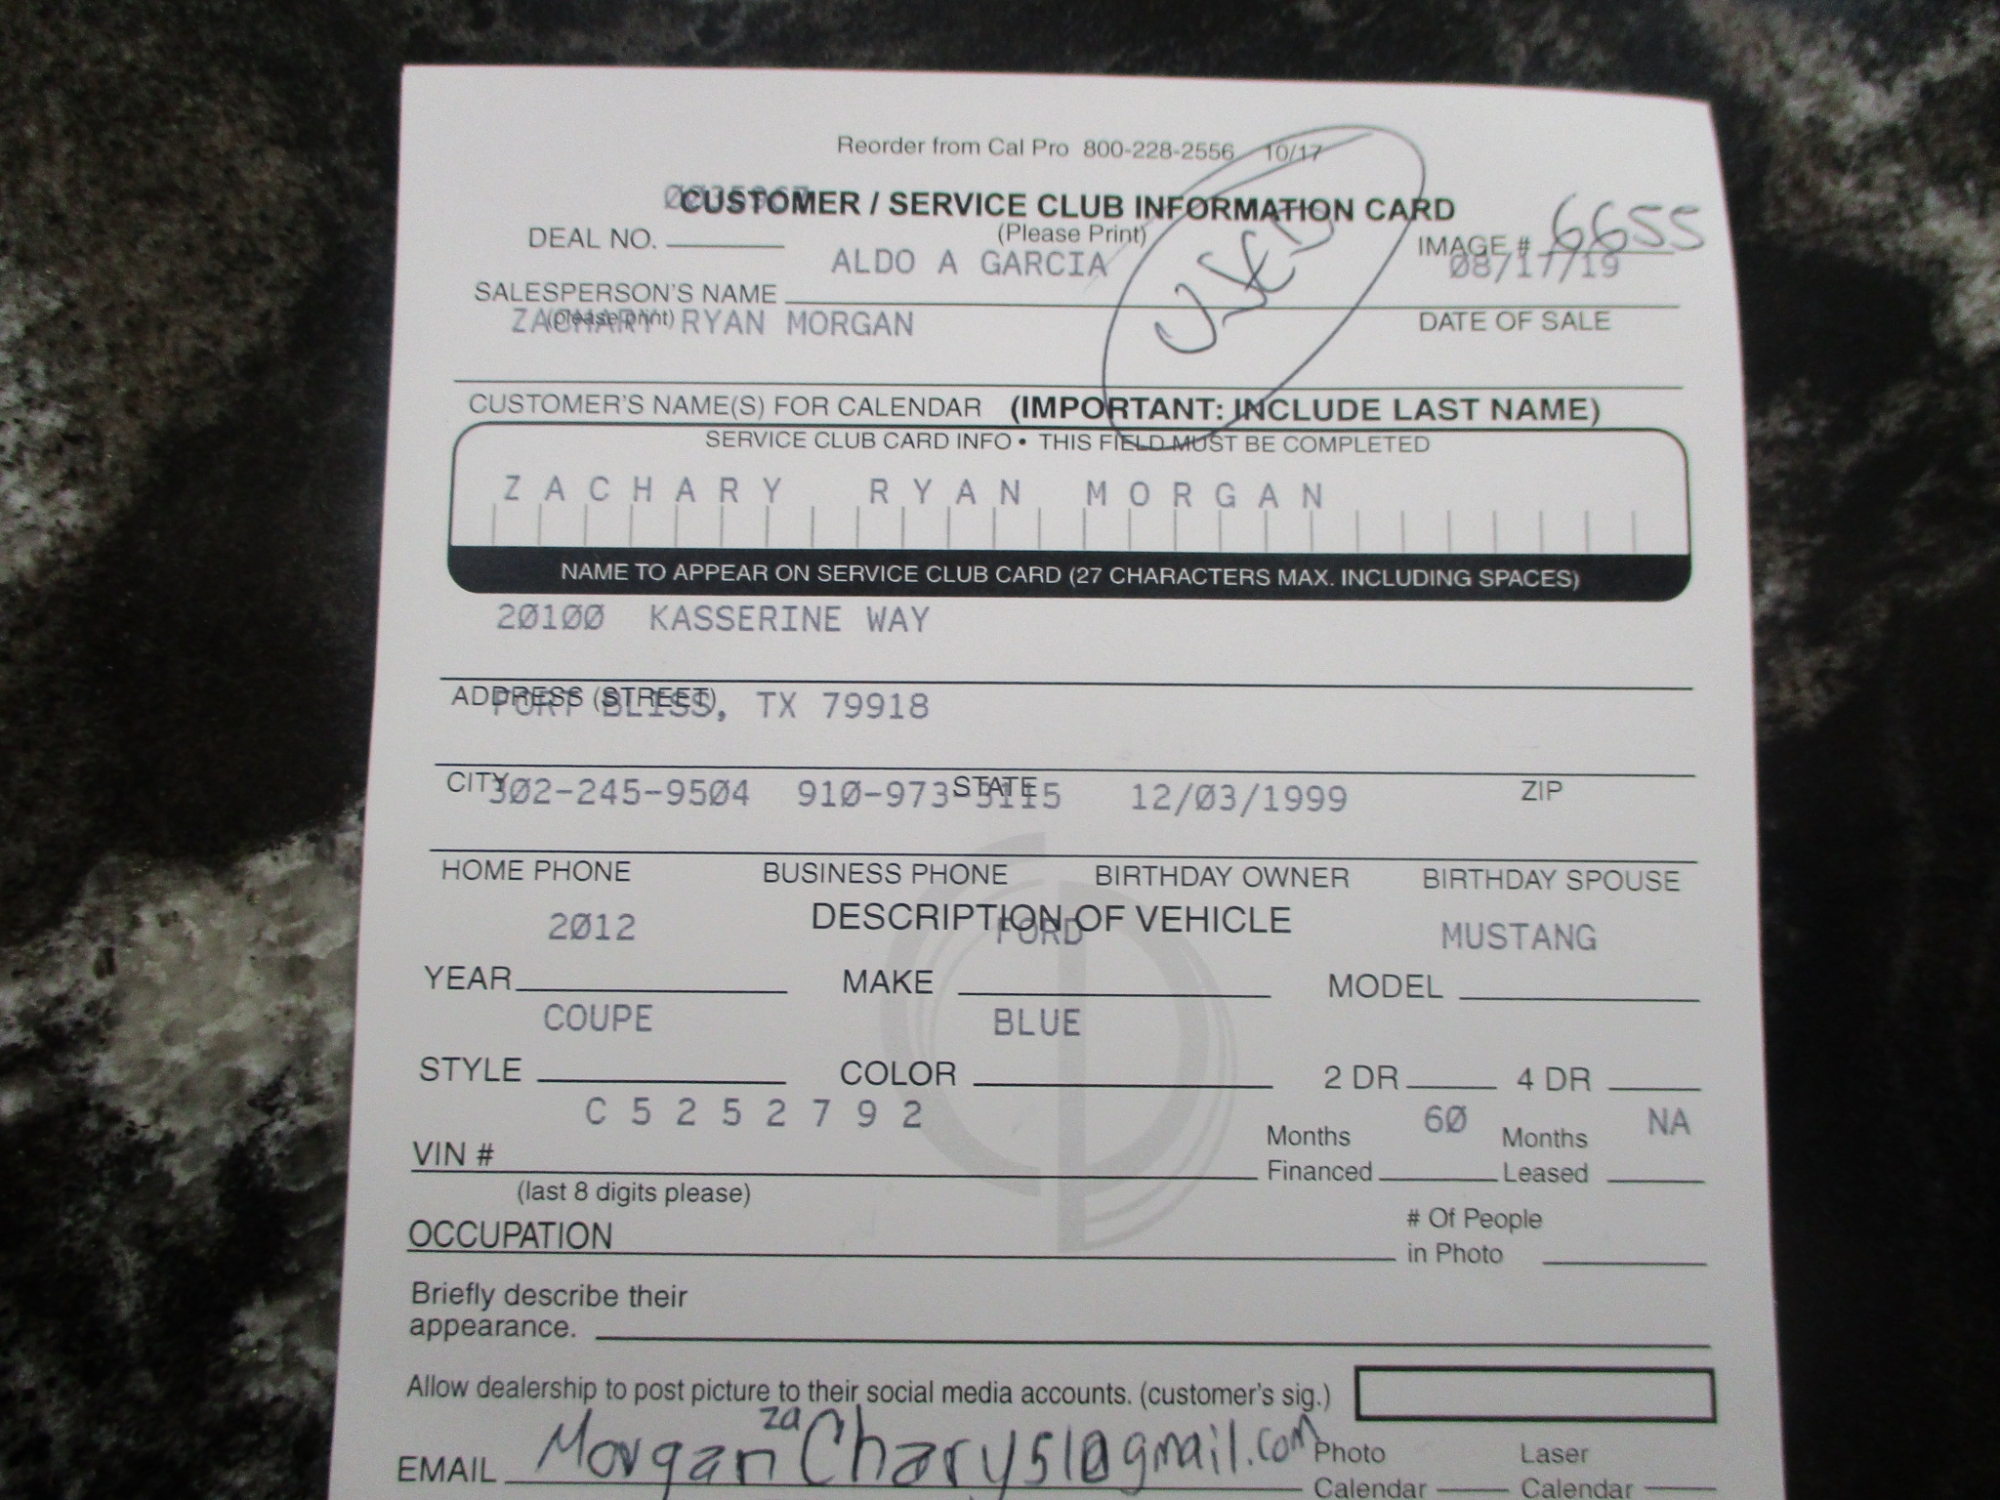 Reorder from Cal Pro 800-228-2556 10/17
CUSTOMER / SERVICE CLUB INFORMATION CARD
(Please Print)
DEAL NO. IMAGE # 6655
ALDO A GARCIA 08/17/19
SALESPERSON'S NAME DATE OF SALE
(please print)
ZACHARY RYAN MORGAN
USED
CUSTOMER'S NAME(S) FOR CALENDAR (IMPORTANT: INCLUDE LAST NAME)
SERVICE CLUB CARD INFO • THIS FIELD MUST BE COMPLETED
ZACHARY RYAN MORGAN
NAME TO APPEAR ON SERVICE CLUB CARD (27 CHARACTERS MAX. INCLUDING SPACES)
20100 KASSERINE WAY
ADDRESS (STREET)
FORT BLISS, TX 79918
CITY STATE ZIP
302-245-9504 910-973- 12/03/1999
HOME PHONE BUSINESS PHONE BIRTHDAY OWNER BIRTHDAY SPOUSE
DESCRIPTION OF VEHICLE
2012 FORD MUSTANG
YEAR MAKE MODEL
COUPE BLUE
STYLE COLOR 2 DR 4 DR
C5252792 60 NA
VIN # Months Financed Months Leased
(last 8 digits please)
OCCUPATION # Of People in Photo
Briefly describe their
appearance.
Allow dealership to post picture to their social media accounts. (customer's sig.)
EMAIL MorganzaChary51@gmail.com Photo Calendar Laser Calendar